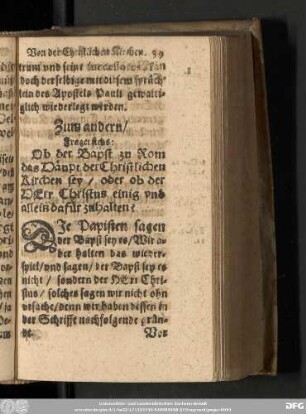 Von der Christlichen Kirchen. 59
trum vnd seine
doch derselbige mit disem sprüch-
lein des Apostels Pauli gewalti-
glich wiederlegt werden.
Zum andern/
Fraget sichs:
Ob der Bapst zu Rom
das Häupt der Christlichen
Kirchen sey / oder ob der
HErr Christus einig vnd
allein dafür zuhalten?
DIe Papisten sagen
der Bapst sey es / Wir a-
ber halten das wieder-
spiel / vnd sagen / der Bapst sey es
nicht / sondern der HErr Chri-
stus / solches sagen wir nicht ohn
vrsache / denn wir haben dessen in
der Schrifft nachfolgende grün-
de. Vor